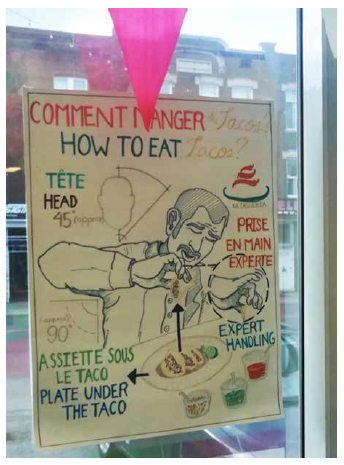 COMMENT MANGER de Tacos?
HOW TO EAT Tacos?
TÊTE
HEAD
45° (approx)
PRISE
EN MAIN
EXPERTE
90°
EXPERT
HANDLING
ASSIETTE SOUS
LE TACO
PLATE UNDER
THE TACO